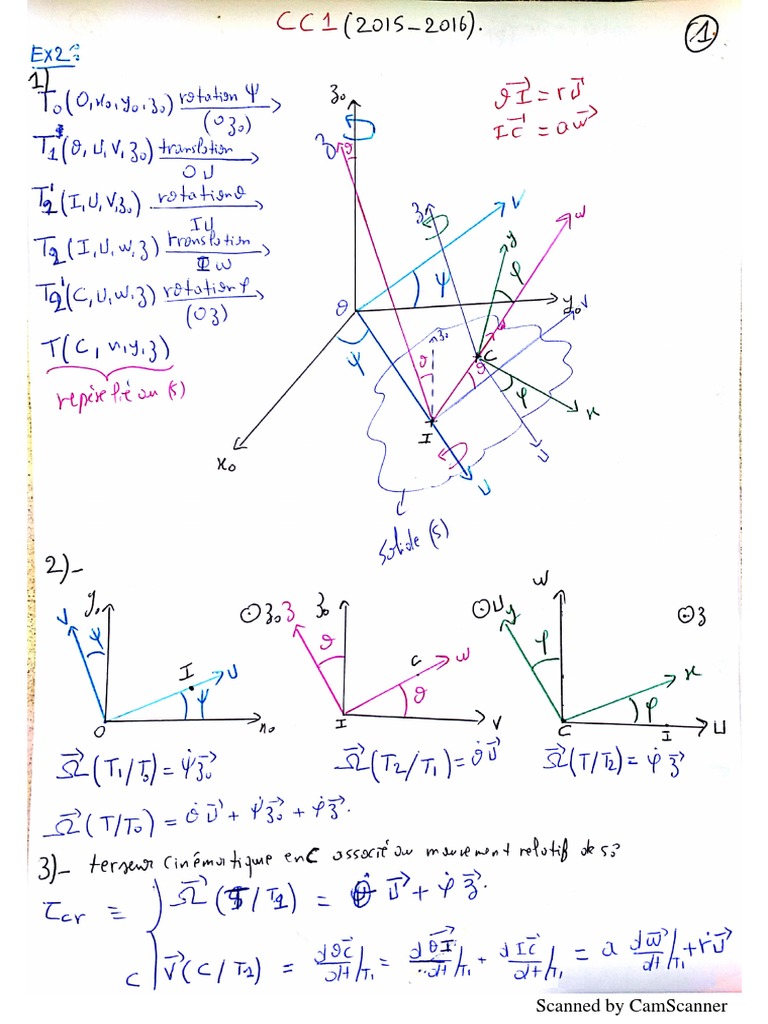 CC1 (2015-2016).
1
EX2:
1)
T₀(O,x₀,y₀,z₀) rotation ψ (Oz₀)
T₁(O,U,V,z₀) translation OU
T₂'(I,U,V,z₀) rotation θ IU
T₂(I,U,w,z) translation Iw
T₂'(C,U,w,z) rotation φ (Oz)
T(C,x,y,z)
repère lié au (S)
OI⃗ = rU⃗
IC⃗ = aw⃗
z₀
z
θ
z
V
w
y
φ
ψ
O
y₀
V
ψ
z₀
θ
C
θ
φ
x
I
U
U
x₀
solide (S)
2)-
V y₀ ψ I U ψ O x₀
⊙z₀ z z₀ θ C w θ I V
⊙U y w φ x φ C I U
⊙z
Ω⃗(T₁/T₀) = ψ̇z₀⃗
Ω⃗(T₂/T₁) = θ̇U⃗
Ω⃗(T/T₂) = φ̇z⃗
Ω⃗(T/T₀) = θ̇U⃗ + ψ̇z₀⃗ + φ̇z⃗.
3)- torseur cinématique en C associé au mouvement relatif de S:
τcr ≡ { Ω⃗(T/T₁) = θ̇U⃗ + φ̇z⃗.
C { V⃗(C/T₁) = dOC⃗/dt/T₁ = dOI⃗/dt/T₁ + dIC⃗/dt/T₁ = a dw⃗/dt/T₁ + ṙU⃗
Scanned by CamScanner